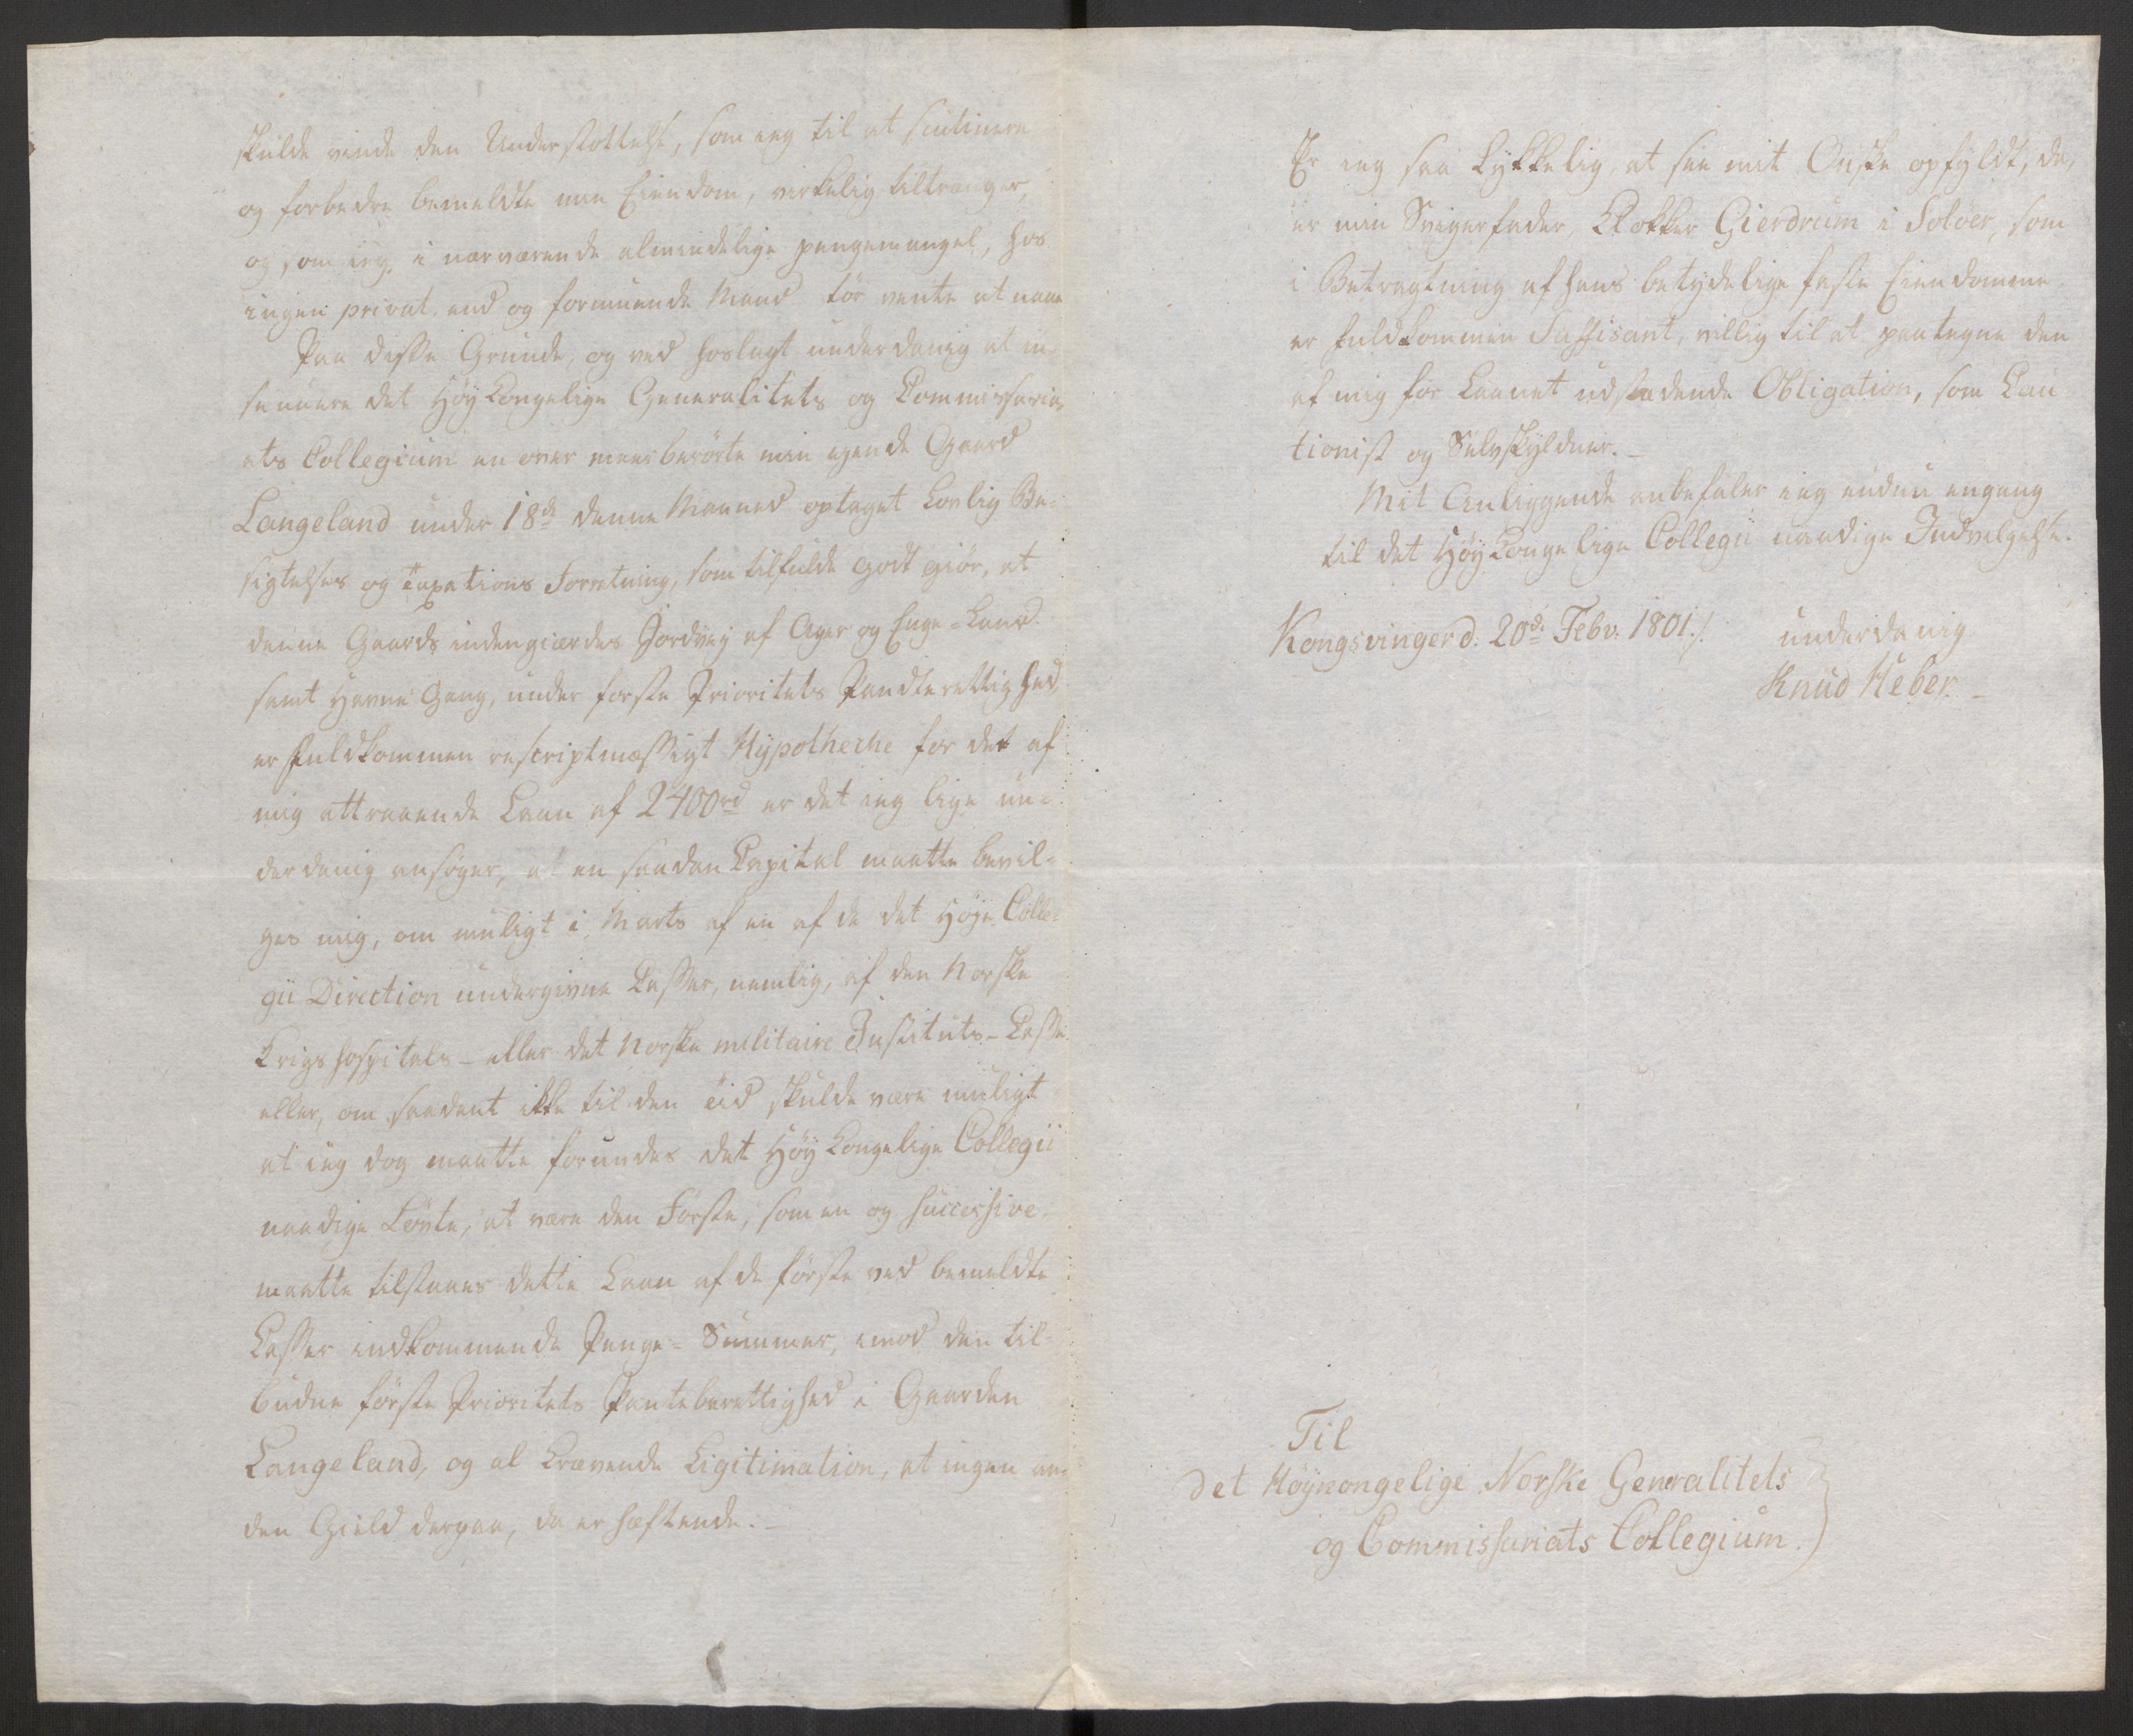 skulde vinde den Understøttelse, som ieg til at soutinere
og forbedre bemeldte min Eiendom, virkelig tiltrænger,
og som ieg, i nærværende almindelige pengemangel, hos
ingen privat, end og formuende Mand tør vente at naae
Paa disse Grunde, og ved hoslagt underdanig at in-
sinuere det Høy Kongelige Generalitets og Commissaria-
ats Collegium en over meerberørte min egende Gaard
Langeland under 18de denne Maaned optaget Lovlig Be-
sigtelses og Taxations Forretning, som tilfulde godt giør, at
denne Gaards indengiærdes Jordvey af Ager og Enge-Land
samt Havne Gang, under første Prioritets Panterettighed,
er fuldkommen rescriptmæssigt Hypotheche for det af
mig attraaende Laan af 2400rd er det ieg lige un-
derdanig ansøger, at en saadan Capital maatte bevil-
ges mig, om muligt i Marts af en af de det Høye Colle-
gii Direction undergivne Casser, nemlig, af den Norske
Krigshospitals- eller det Norske militaire Instituts-Casse
eller, om saadant ikke til den tid skulde være muligt
at ieg dog maatte forundes det Høy Kongelige Collegii
naadige Løvte, at være den Første, som en og successive
maatte tilstaaes dette Laan af de første ved bemeldte
Casser indkommende Penge-Summer, imod den til-
budne første Prioritets Panteberettighed i Gaarden
Langeland, og al Krævende Legitimation, at ingen an-
den Gield derpaa, da er hæftende.-
Er ieg saa Lykkelig, at see mit Ønske opfyldt, da,
er min Svigerfader, Klokker Gierdrum i Soloer, som
i Betragtning af hans betydelige faste Eiendomme
er fuldkommen Suffisant, villig til at paategne den
af mig for Laanet udstædende Obligation, som Cau
tionist og Selvskyldner.-
Mit Anliggende anbefaler ieg endnu engang
til det Høy Kongelige Collegii naadige Indvilgelse.
Kongsvinger d. 20de Febr. 1801./. underdanig
Knud Heber.-
Til
det Høykongelige Norske Generalitets
og Commissariats Collegium.